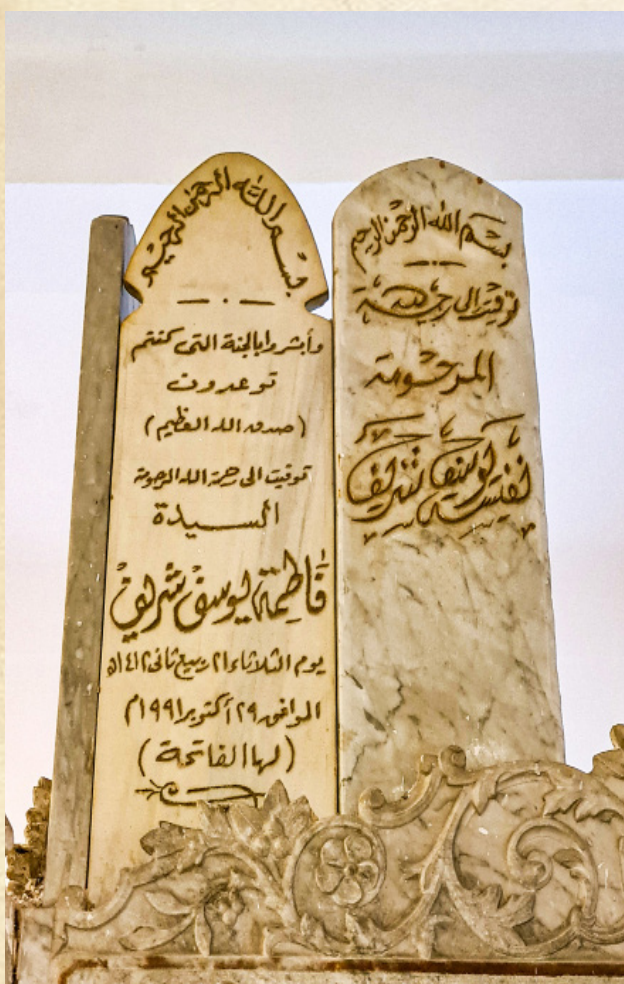 بسم الله الرحمن الرحيم
توفيت الى رحمة الله
المرحومة
نفيسه يوسف شريف
بسم الله الرحمن الرحيم
وأبشروا بالجنة التى كنتم
توعدون
(صدق الله العظيم)
توفيت الى رحمة الله المرحومة
السيدة
فاطمة يوسف شريف
يوم الثلاثاء ٢١ ربيع ثانى ١٤١٢ه
الموافق ٢٩ أكتوبر ١٩٩١م
(لها الفاتحة)